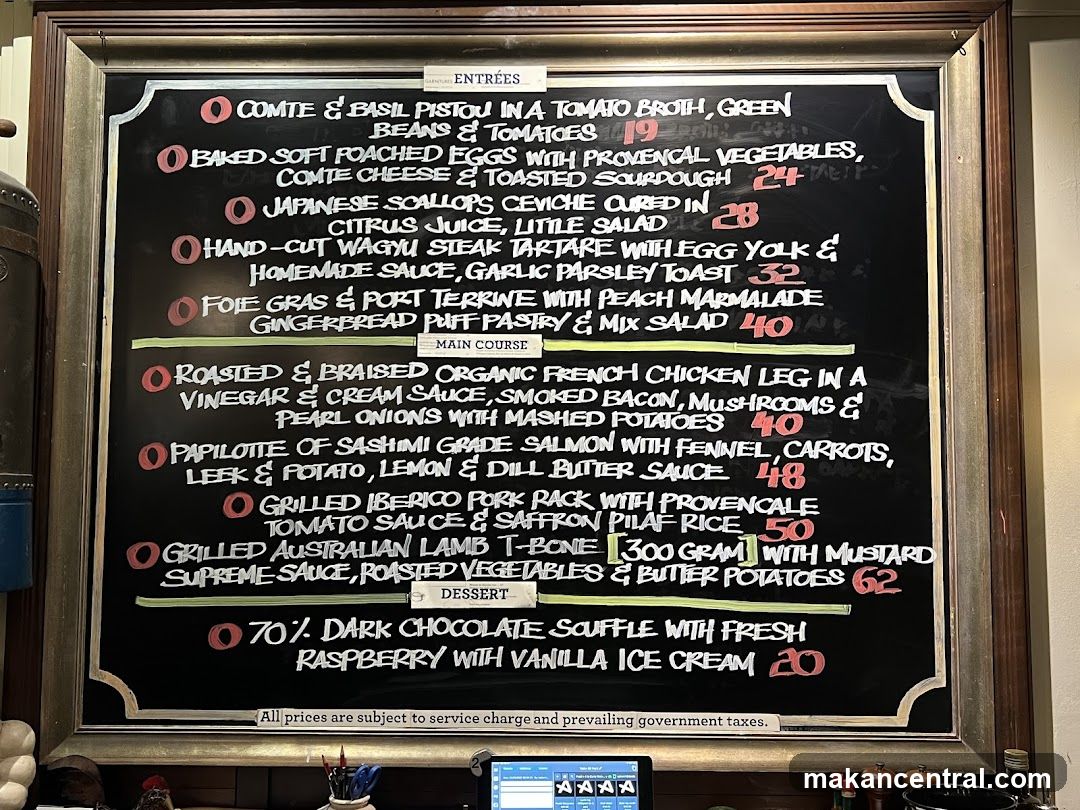 ENTRÉES
O COMTE & BASIL PISTOU IN A TOMATO BROTH, GREEN
BEANS & TOMATOES 19
O BAKED SOFT POACHED EGGS WITH PROVENCAL VEGETABLES,
COMTE CHEESE & TOASTED SOURDOUGH 24
O JAPANESE SCALLOPS CEVICHE CURED IN
CITRUS JUICE, LITTLE SALAD 28
O HAND-CUT WAGYU STEAK TARTARE WITH EGG YOLK &
HOMEMADE SAUCE, GARLIC PARSLEY TOAST 32
O FOIE GRAS & PORT TERRINE WITH PEACH MARMALADE
GINGERBREAD PUFF PASTRY & MIX SALAD 40
MAIN COURSE
O ROASTED & BRAISED ORGANIC FRENCH CHICKEN LEG IN A
VINEGAR & CREAM SAUCE, SMOKED BACON, MUSHROOMS &
PEARL ONIONS WITH MASHED POTATOES 40
O PAPILOTTE OF SASHIMI GRADE SALMON WITH FENNEL, CARROTS,
LEEK & POTATO, LEMON & DILL BUTTER SAUCE 48
O GRILLED IBERICO PORK RACK WITH PROVENCALE
TOMATO SAUCE & SAFFRON PILAF RICE 50
O GRILLED AUSTRALIAN LAMB T-BONE [300 GRAM] WITH MUSTARD
SUPREME SAUCE, ROASTED VEGETABLES & BUTTER POTATOES 62
DESSERT
O 70% DARK CHOCOLATE SOUFFLE WITH FRESH
RASPBERRY WITH VANILLA ICE CREAM 20
All prices are subject to service charge and prevailing government taxes.
2
makancentral.com